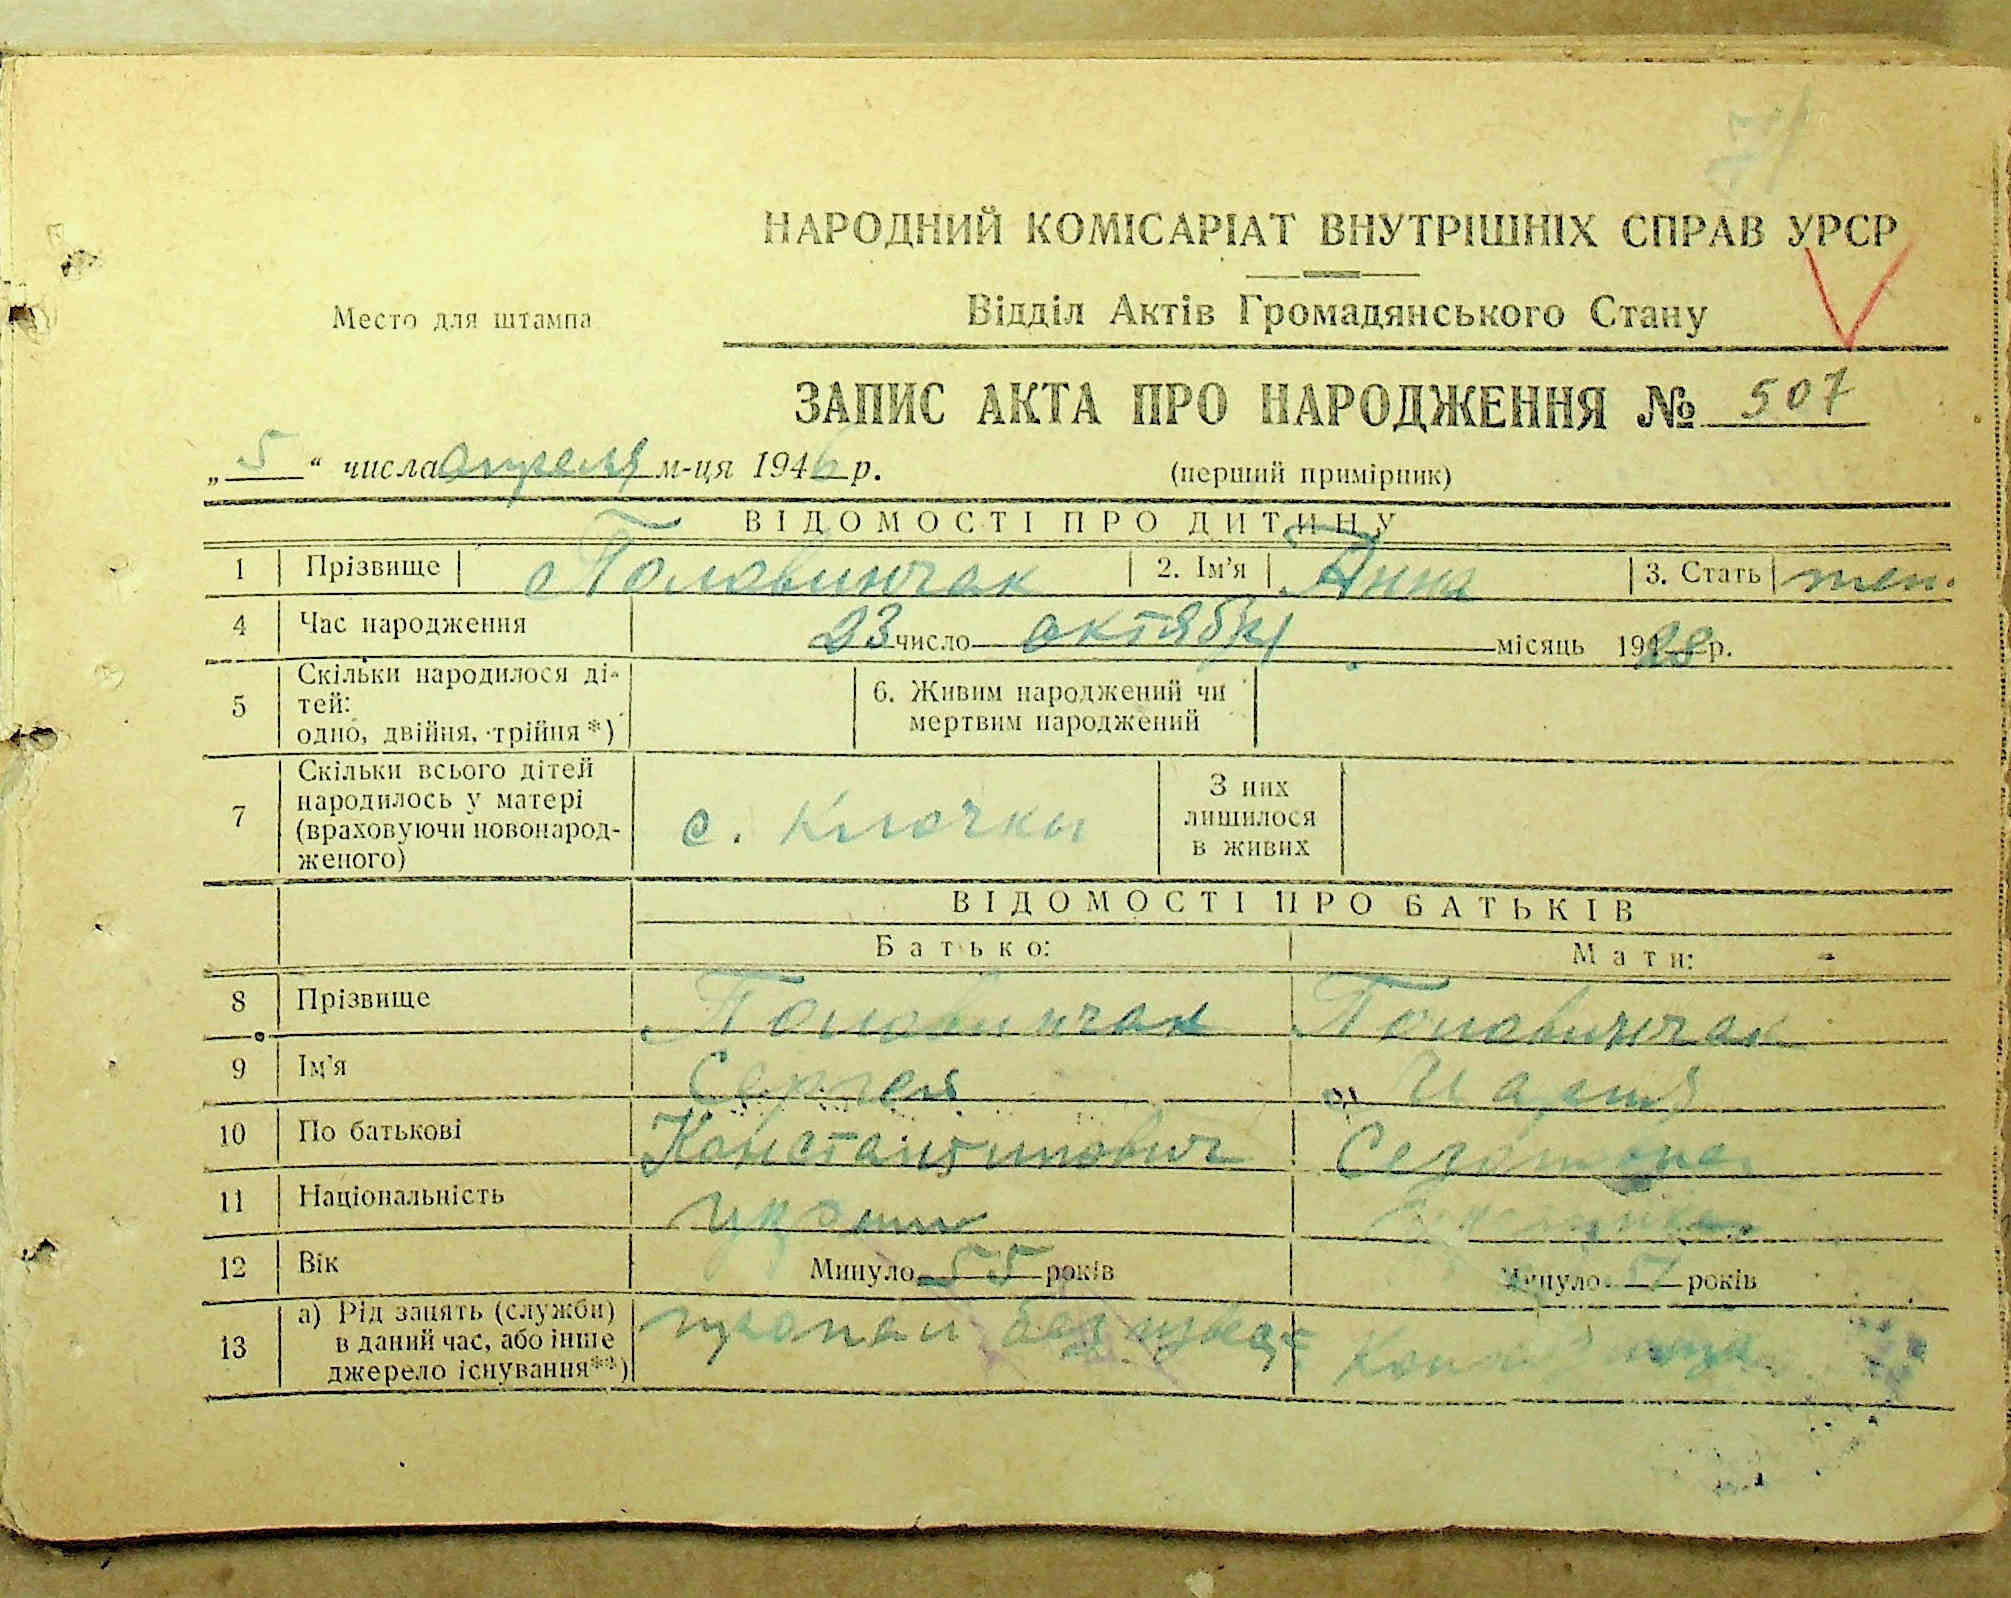 НАРОДНИЙ КОМІСАРІАТ ВНУТРІШНІХ СПРАВ УРСР
Место для штампа
Відділ Актів Громадянського Стану
ЗАПИС АКТА ПРО НАРОДЖЕННЯ № 507
„5“ числа апреля м-ця 1946 р. (перший примірник)
ВІДОМОСТІ ПРО ДИТИНУ
1 Прізвище Половинчак 2. Ім’я Анна 3. Стать жен.
4 Час народження 23 число октября місяць 1928 р.
5 Скільки народилося ді-
тей:
одно, двійня, трійня *)
6. Живим народжений чи
мертвим народжений
7 Скільки всього дітей
народилось у матері
(враховуючи новонарод-
женого)
с. Клочки
З них
лишилося
в живих
ВІДОМОСТІ ПРО БАТЬКІВ
Батько: Мати:
8 Прізвище Половинчак Половинчак
9 Ім’я Сергей Мария
10 По батькові Константинович
11 Національність
12 Вік Минуло 55 років Минуло 51 років
13 а) Рід занять (служби)
в даний час, або інше
джерело існування**)
пропал без